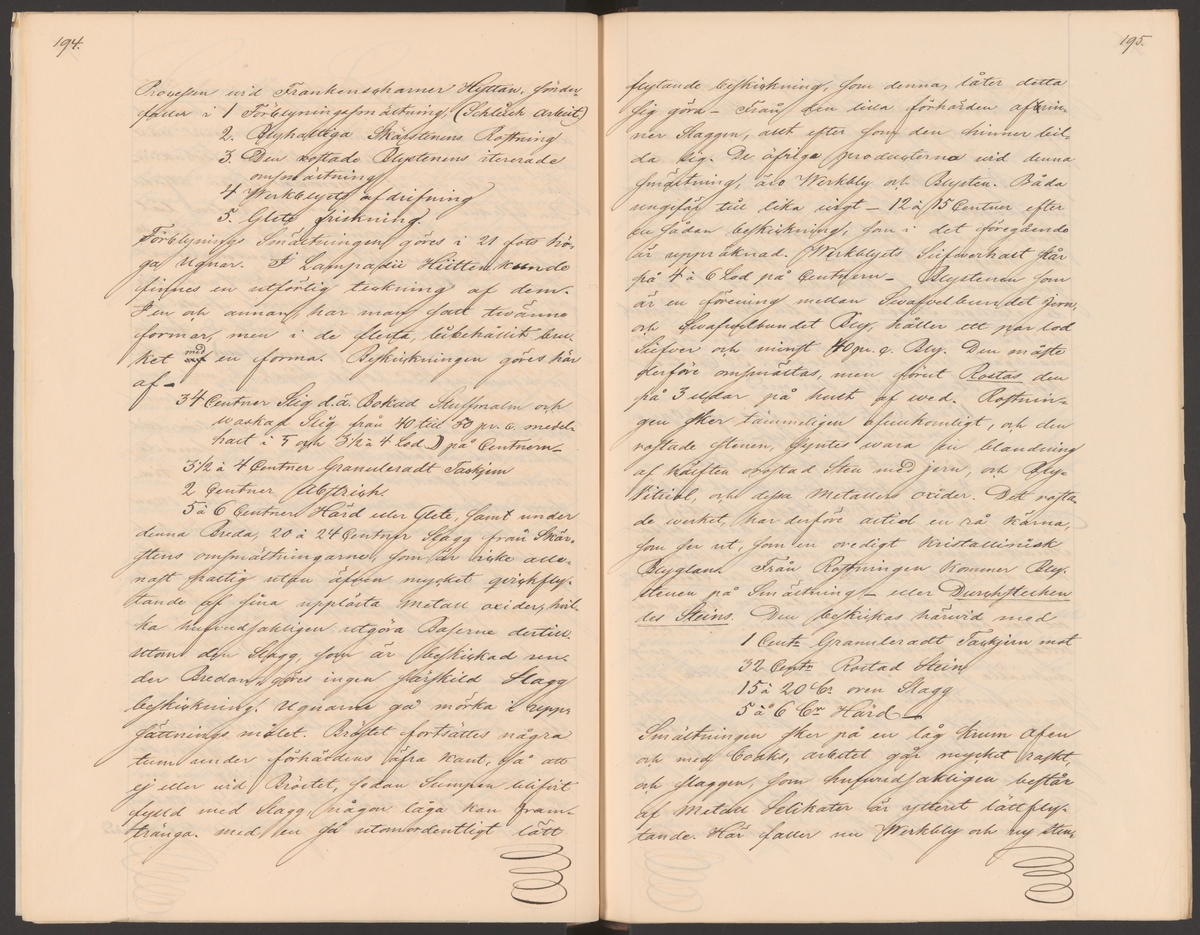 194.
Processen vid Frankenscharner Hyttan, sönder-
faller i 1 Förblyningssmältning, (Schliech Arbeit)
2. Blyhaltiga Skärstenens Rostning
3. Den rostade Blystenens itererade
omsmältning
4 Werkblyets afdrifning
5. Glete friskning
Förblynings Smältningen göres i 21 fots hö-
ga Ugnar. I Lampadii Hüttenkunde
finnes en utförlig teckning af dem.
I en och annan har man satt tvänne
formar, men i de flesta, bibehållit bru-
ket med en forma. Beskickningen göres här
af —
34 Centner Slig d.ä. Bokad Stuffmalm och
waskad Slig från 40 till 50 pr. c. medel-
halt i 5 och 3 1/2 à 4 Lod.) på Centnern—
3 1/2 à 4 Centner Granuleradt Tackjern
2 Centner Abstrich
5 à 6 Centner Härd eller Glete, samt under
denna Breda, 20 à 24 Centner Slagg från Skär-
stens omsmältningarne, som är icke alle-
nast fattig utan äfven mycket qvickfly-
tande af sina upplösta metall oxider, hvil-
ka hufvudsakligen utgöra Baserne dertill.
Utom den Slagg som är beskickad un-
der Bredan, göres ingen särskild Slagg
beskickning. Ugnarne gå mörka i upp-
sättnings målet. Bröstet fortsättes några
tum under förhärdens öfra kant, så att
ej eller vid Bröstet, sedan Sumpen blifvit
fylld med Slagg någon låga kan fram-
tränga. med en så utomordentligt lätt
195.
flytande beskickning, som denna, låter detta
sig göra — Från den lilla förhärden afrin-
ner Slaggen, allt efter som den hinner bil-
da sig. De öfriga producterna vid denna
smältning, äro Werkbly och Blysten. Båda
ungefär till lika vigt — 12 à 15 Centner efter
en sådan beskickning, som i det föregående
är uppräknad. Werkblyets Silfverhalt står
på 4 à 6 Lod på Centnern — Blystenen som
är en förening mellan Swafvelbundet jern,
och Swafvelbundet Bly, håller ett par lod
Silfver och minst 40 pr. c. Bly. Den måste
derföre omsmältas, men först Rostas den
på 3 eldar på hvarf af wed. Rostnin-
gen sker tämmeligen ofullkomligt, och den
rostade stenen, synes wara en blandning
af hälften orostad Sten med jern, och Bly-
Vitriol, och dessa metallers oxider. Det rosta-
de werket, har derföre altid en rå kärna,
som ser ut, som en oredigt kristallinisk
Blyglans. Från Rostningen kommer Bly-
stenen på Smältning — eller Durchstechen
des Steins. Den beskickas härvid med
1 Centr Granuleradt Tackjern mot
32 Centr Rostad Stein
15 à 20 Cr oren Slagg
5 à 6 Cr Härd —
Smältningen sker på en låg Krum Ofen
och med Coaks, arbetet går mycket raskt,
och slaggen, som hufvudsakligen består
af Metall Silikater är ytterst lättfly-
tande. Här faller nu Werkbly och ny sten,